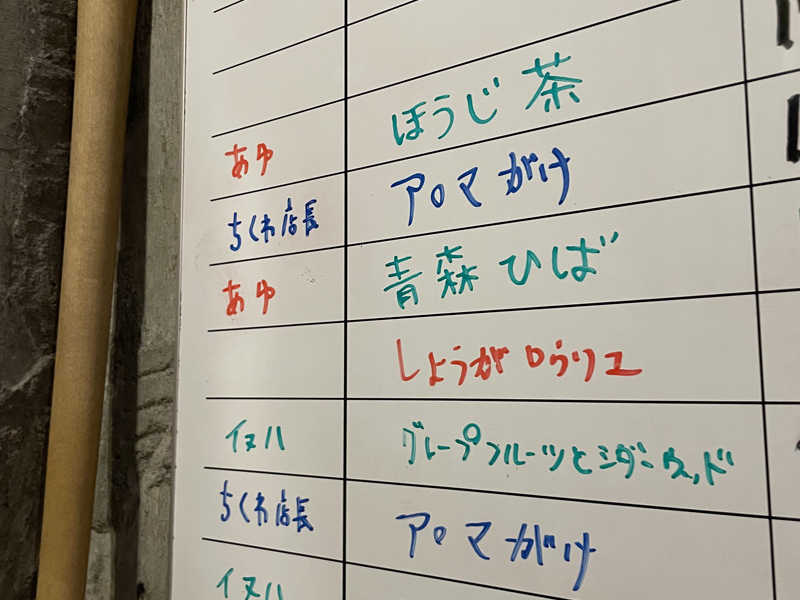 あゆ ほうじ茶
ちくわ店長 アロマがけ
あゆ 青森ひば
しょうがロウリュ
イヌハ グレープフルーツとシダーウッド
ちくわ店長 アロマがけ
イヌハ